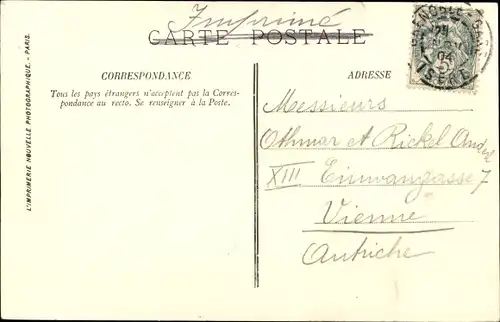 Imprimé
CARTE POSTALE
GRENOBLE-GARE
04
ISERE
CORRESPONDANCE
Tous les pays étrangers n'acceptent pas la Corres-
pondance au recto. Se renseigner à la Poste.
L'IMPRIMERIE NOUVELLE PHOTOGRAPHIQUE. - PARIS.
ADRESSE
Messieurs
Othmar et Rickel
XIII Einwangasse 7
Vienne
Autriche